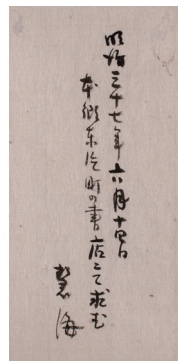 明治三十七年六月十四日
本郷東片町の書店ニて求む
慧海